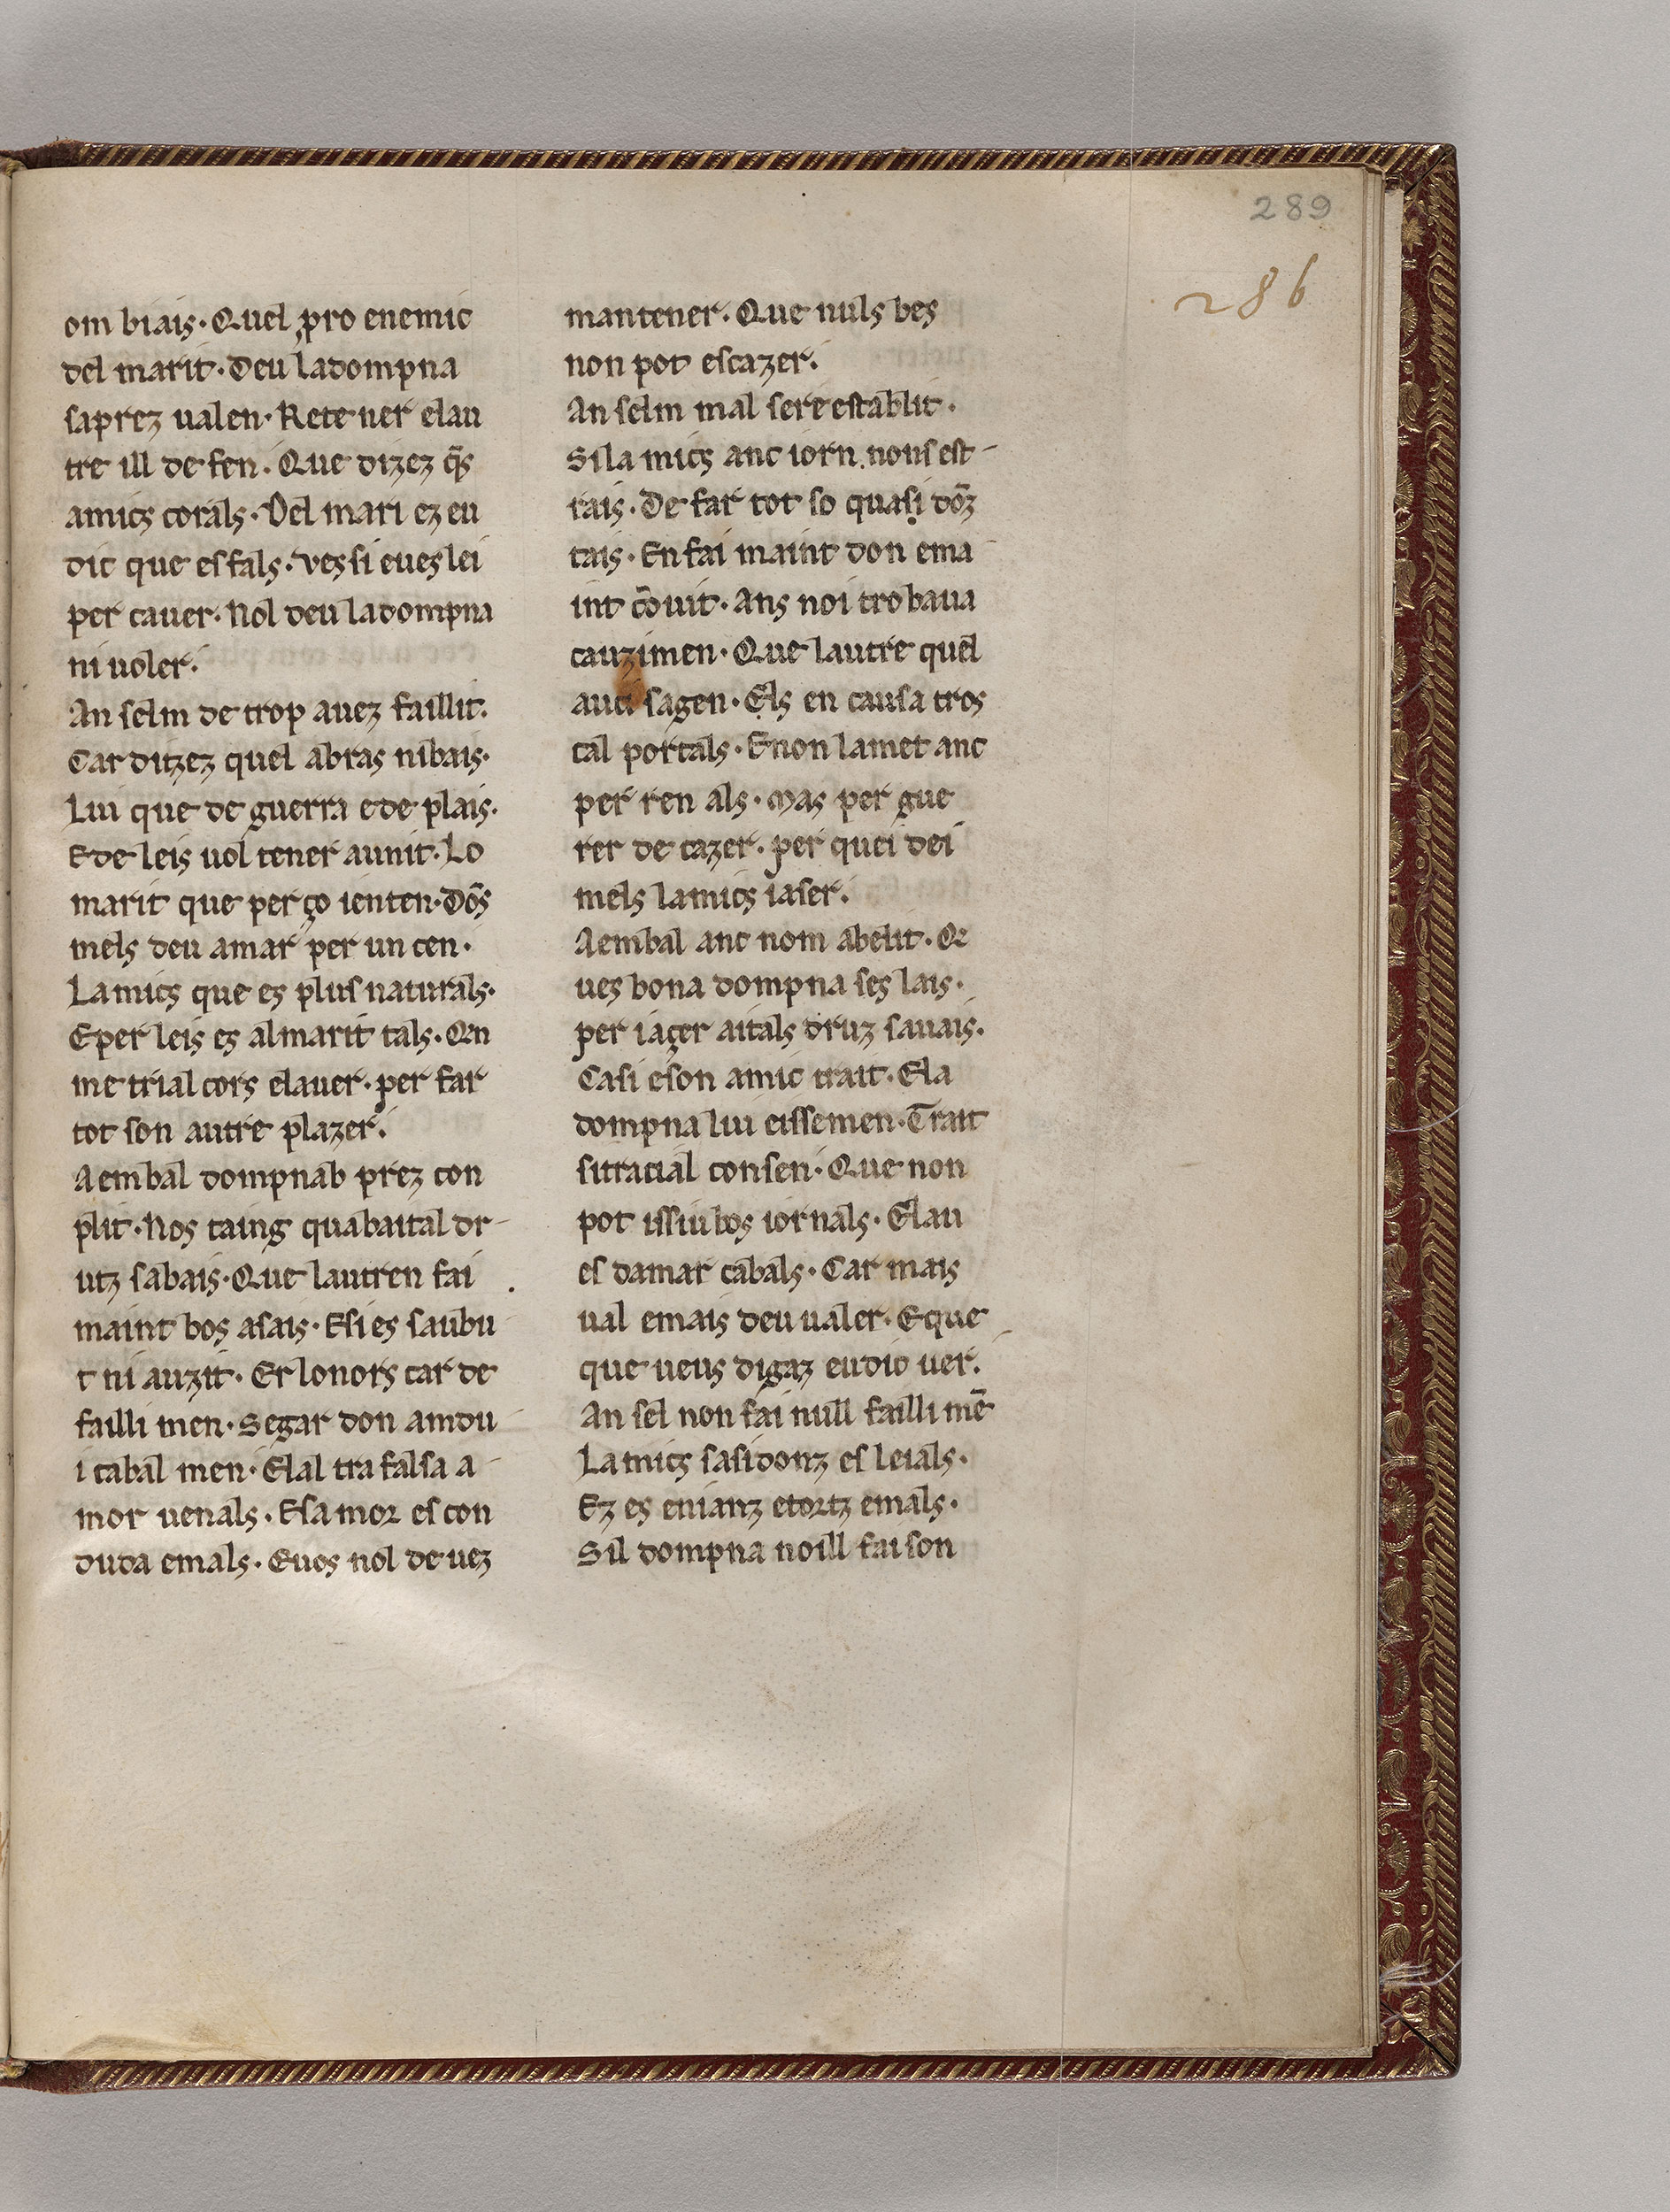 289
286
om biais. Quel pro enemic
del marit. Deu ladompna
saprez ualen. Rete ner elau
tre ill de fen. Que dizez q̃s
amics corals. Del mari ez eu
dic que es fals. Ves si eues lei
per cauer. Nol deu ladompna
ni uoler.
An selm de trop auez faillit.
Car dizez quel abras nibais.
Lui que de guerra ede plais.
Ede leis uol tener aunit. Lo
marit que per ço ienten. Dõs
mels deu amar per un cen.
Lamics que es plus naturals.
Eper leis es almarit tals. Qn
me trial cors elauer. per far
tot son autre plazer.
Aembal dompnab prez con
plit. Nos taing quabaital dr-
utz sabais. Que lautren fai
maint bos asais. Esi es saubu
t ni auzit. Er lonors car de
failli men. Segar don amdu
i cabal men. Elal tra falsa a-
mor uenals. Esa mor es con
duda emals. Euos nol de uez
mantener. Que nuls bes
non pot escazer.
An selm mal sere establit.
Sila mics anc iorn nons est-
rais. De far tot so quasi dõz
tais. En fai maint don ema
int cõuit. Ans noi trobaua
cauzimen. Que lautre quel
auci sagen. Els en causa tros
cal portals. Enon lamet anc
per ren als. Mas per gue
rer de cazer. per quei dei
mels lamics iaser.
Aembal anc nom abelit. Q
ues bona dompna ses lais.
per iaçer aitals druz sauais.
Casi eson amic trait. Ela
dompna lui eissemen. Trait
sitracial consen. Que non
pot issiu bos iornals. Elau
es damar cabals. Car mais
ual emais deu ualer. Eque
que ueus digaz eu dic uer.
An sel non fai null failli mẽ
Lamics sasi donz es leials.
Ez es enianz etortz emals.
Sil dompna noill fai son